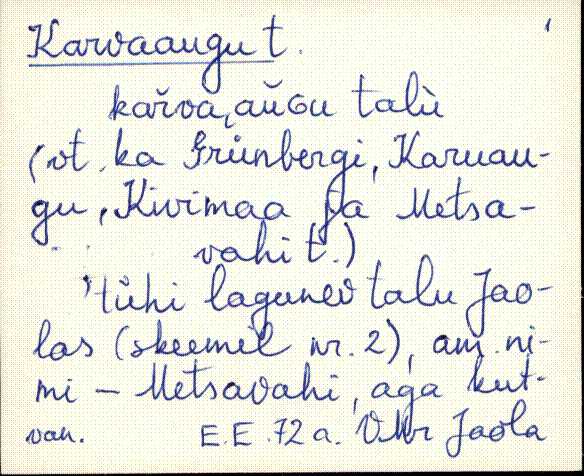 Karvaaugu t. 1
kaŕva,aŭGu talù
(vt. ka Grünbergi, Karuau-
gu, Kivimaa ja Metsa-
vahi t.)
'tühi lagunev talu Jao-
las (skeemil nr. 2), am. ni-
mi – Metsavahi, aga kut-
van. E.E. 72 a. VMr Jaola